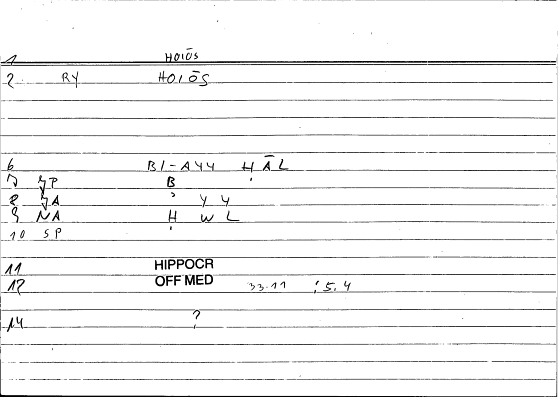 1 HOIŌS
2 RY HOIŌS
6 BI-AYY HĀL
7 ZP B
8 ZA , Y Y
9 NA H W L
10 SP '
11 HIPPOCR
12 OFF MED 33.11 : 5.4
14 ?